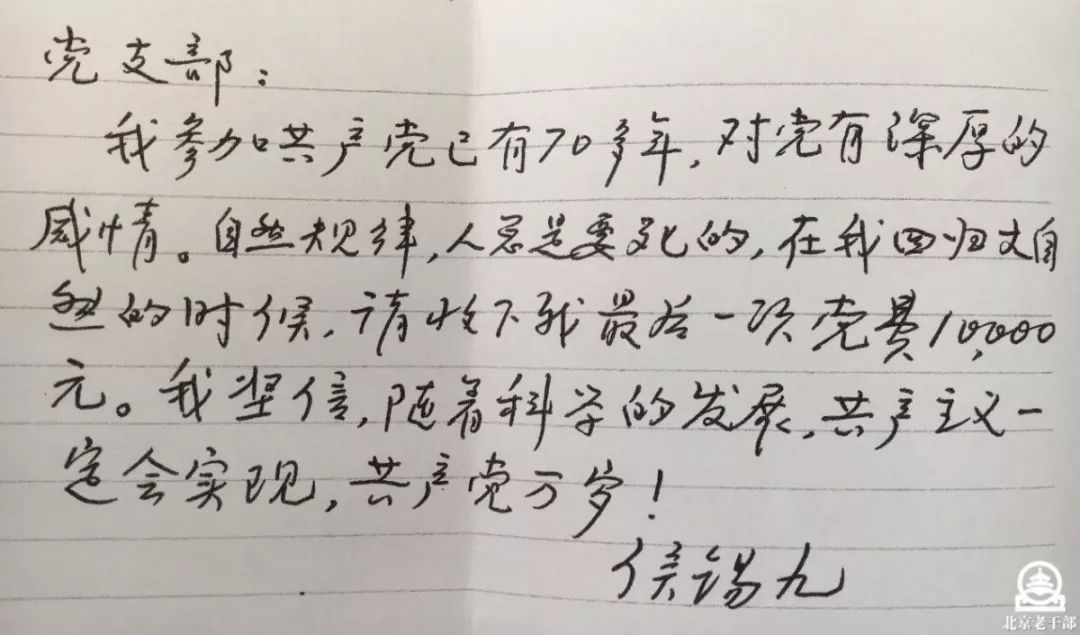 党支部：
我参加共产党已有70多年，对党有深厚的
感情。自然规律，人总是要死的，在我回归大自
然的时候，请收下我最后一项党费10,000
元。我坚信，随着科学的发展，共产主义一
定会实现，共产党万岁！
侯锡九
北京老干部